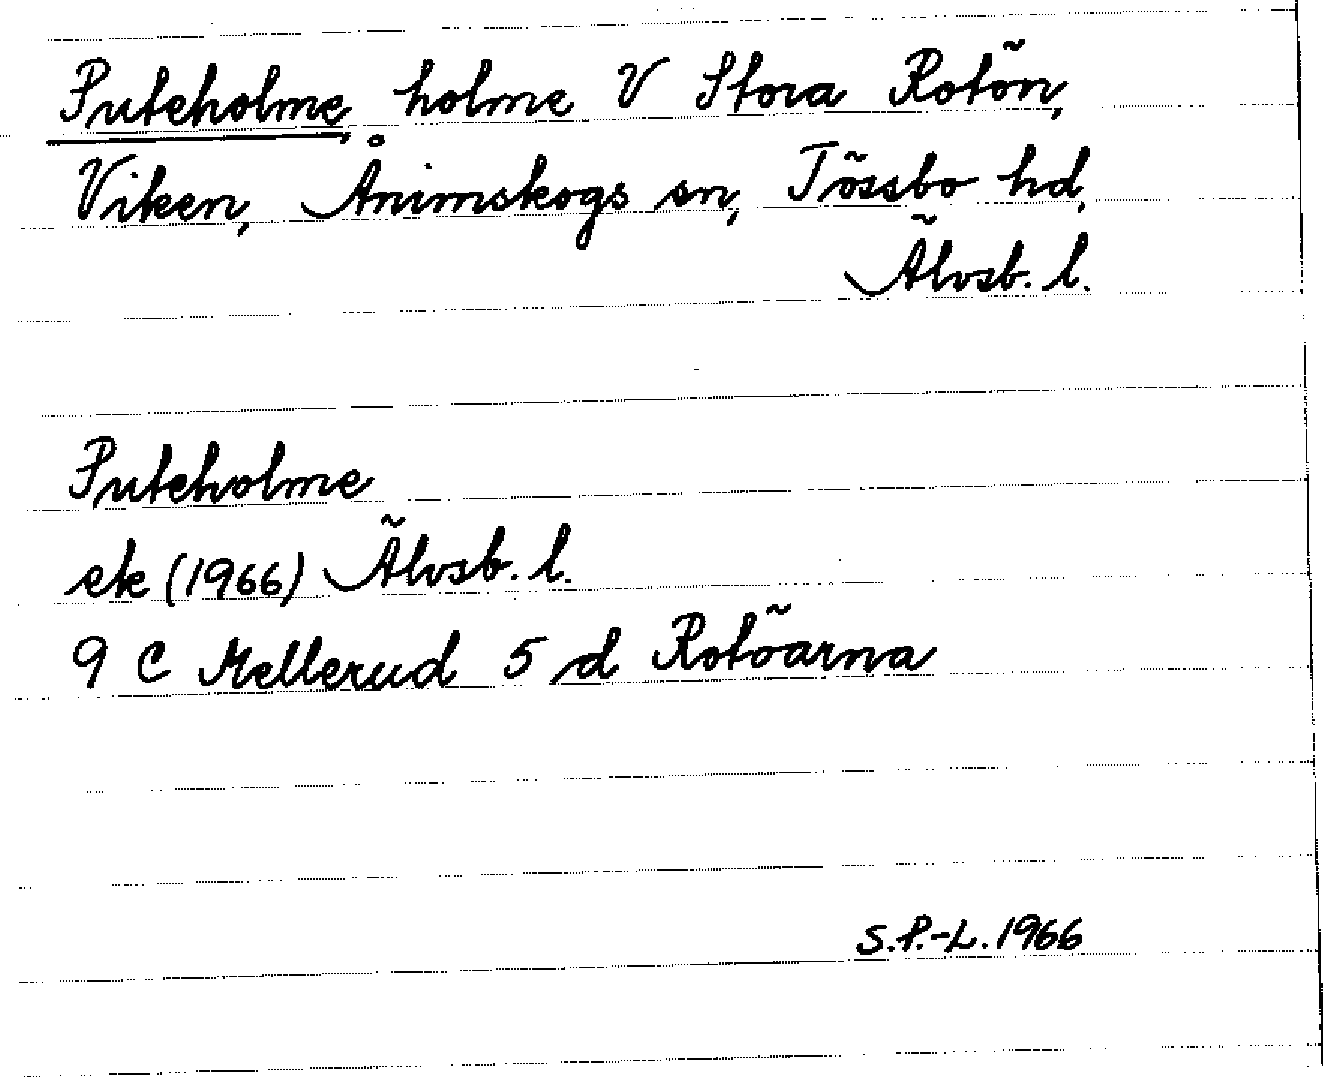 Puteholme, holme V Stora Rotön,
Viken, Ånimskogs sn, Tössbo hd,
Älvsb. l.
Puteholme
ek (1966) Älvsb. l.
9 C Mellerud 5 d Rotöarna
S.P.-L. 1966